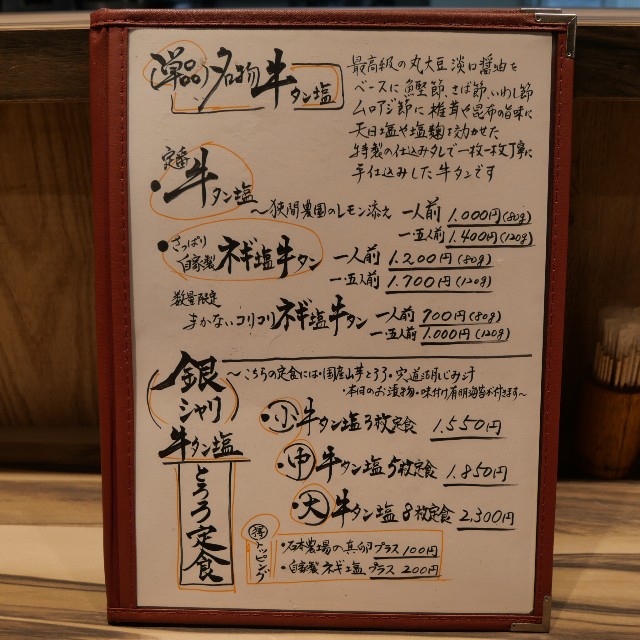 (単品)名物牛タン塩
最高級の丸大豆淡口醤油を
ベースに鰹節、さば節、いわし節
ムロアジ節に椎茸や昆布の旨味に
天日塩や塩麹を効かせた
特製の仕込みタレで一枚一枚丁寧に
手仕込みした牛タンです
定番
・牛タン塩
〜狭間農園のレモン添え 一人前 1.000円(80g)
一.五人前 1.400円(120g)
・さっぱり自家製 ネギ塩牛タン 一人前 1.200円(80g)
一.五人前 1.700円(120g)
数量限定
まかないコリコリネギ塩牛タン 一人前 700円(80g)
一.五人前 1.000円(120g)
銀シャリ
牛タン塩
とろろ定食
〜こちらの定食には・国産山芋とろろ・宍道湖しじみ汁
・本日のお漬物・味付け有明海苔が付きます〜
・小 牛タン塩3枚定食 1.550円
・中 牛タン塩5枚定食 1.850円
・大 牛タン塩8枚定食 2,300円
得トッピング
・石本農場の真卵 プラス 100円
・自家製ネギ塩 プラス 200円